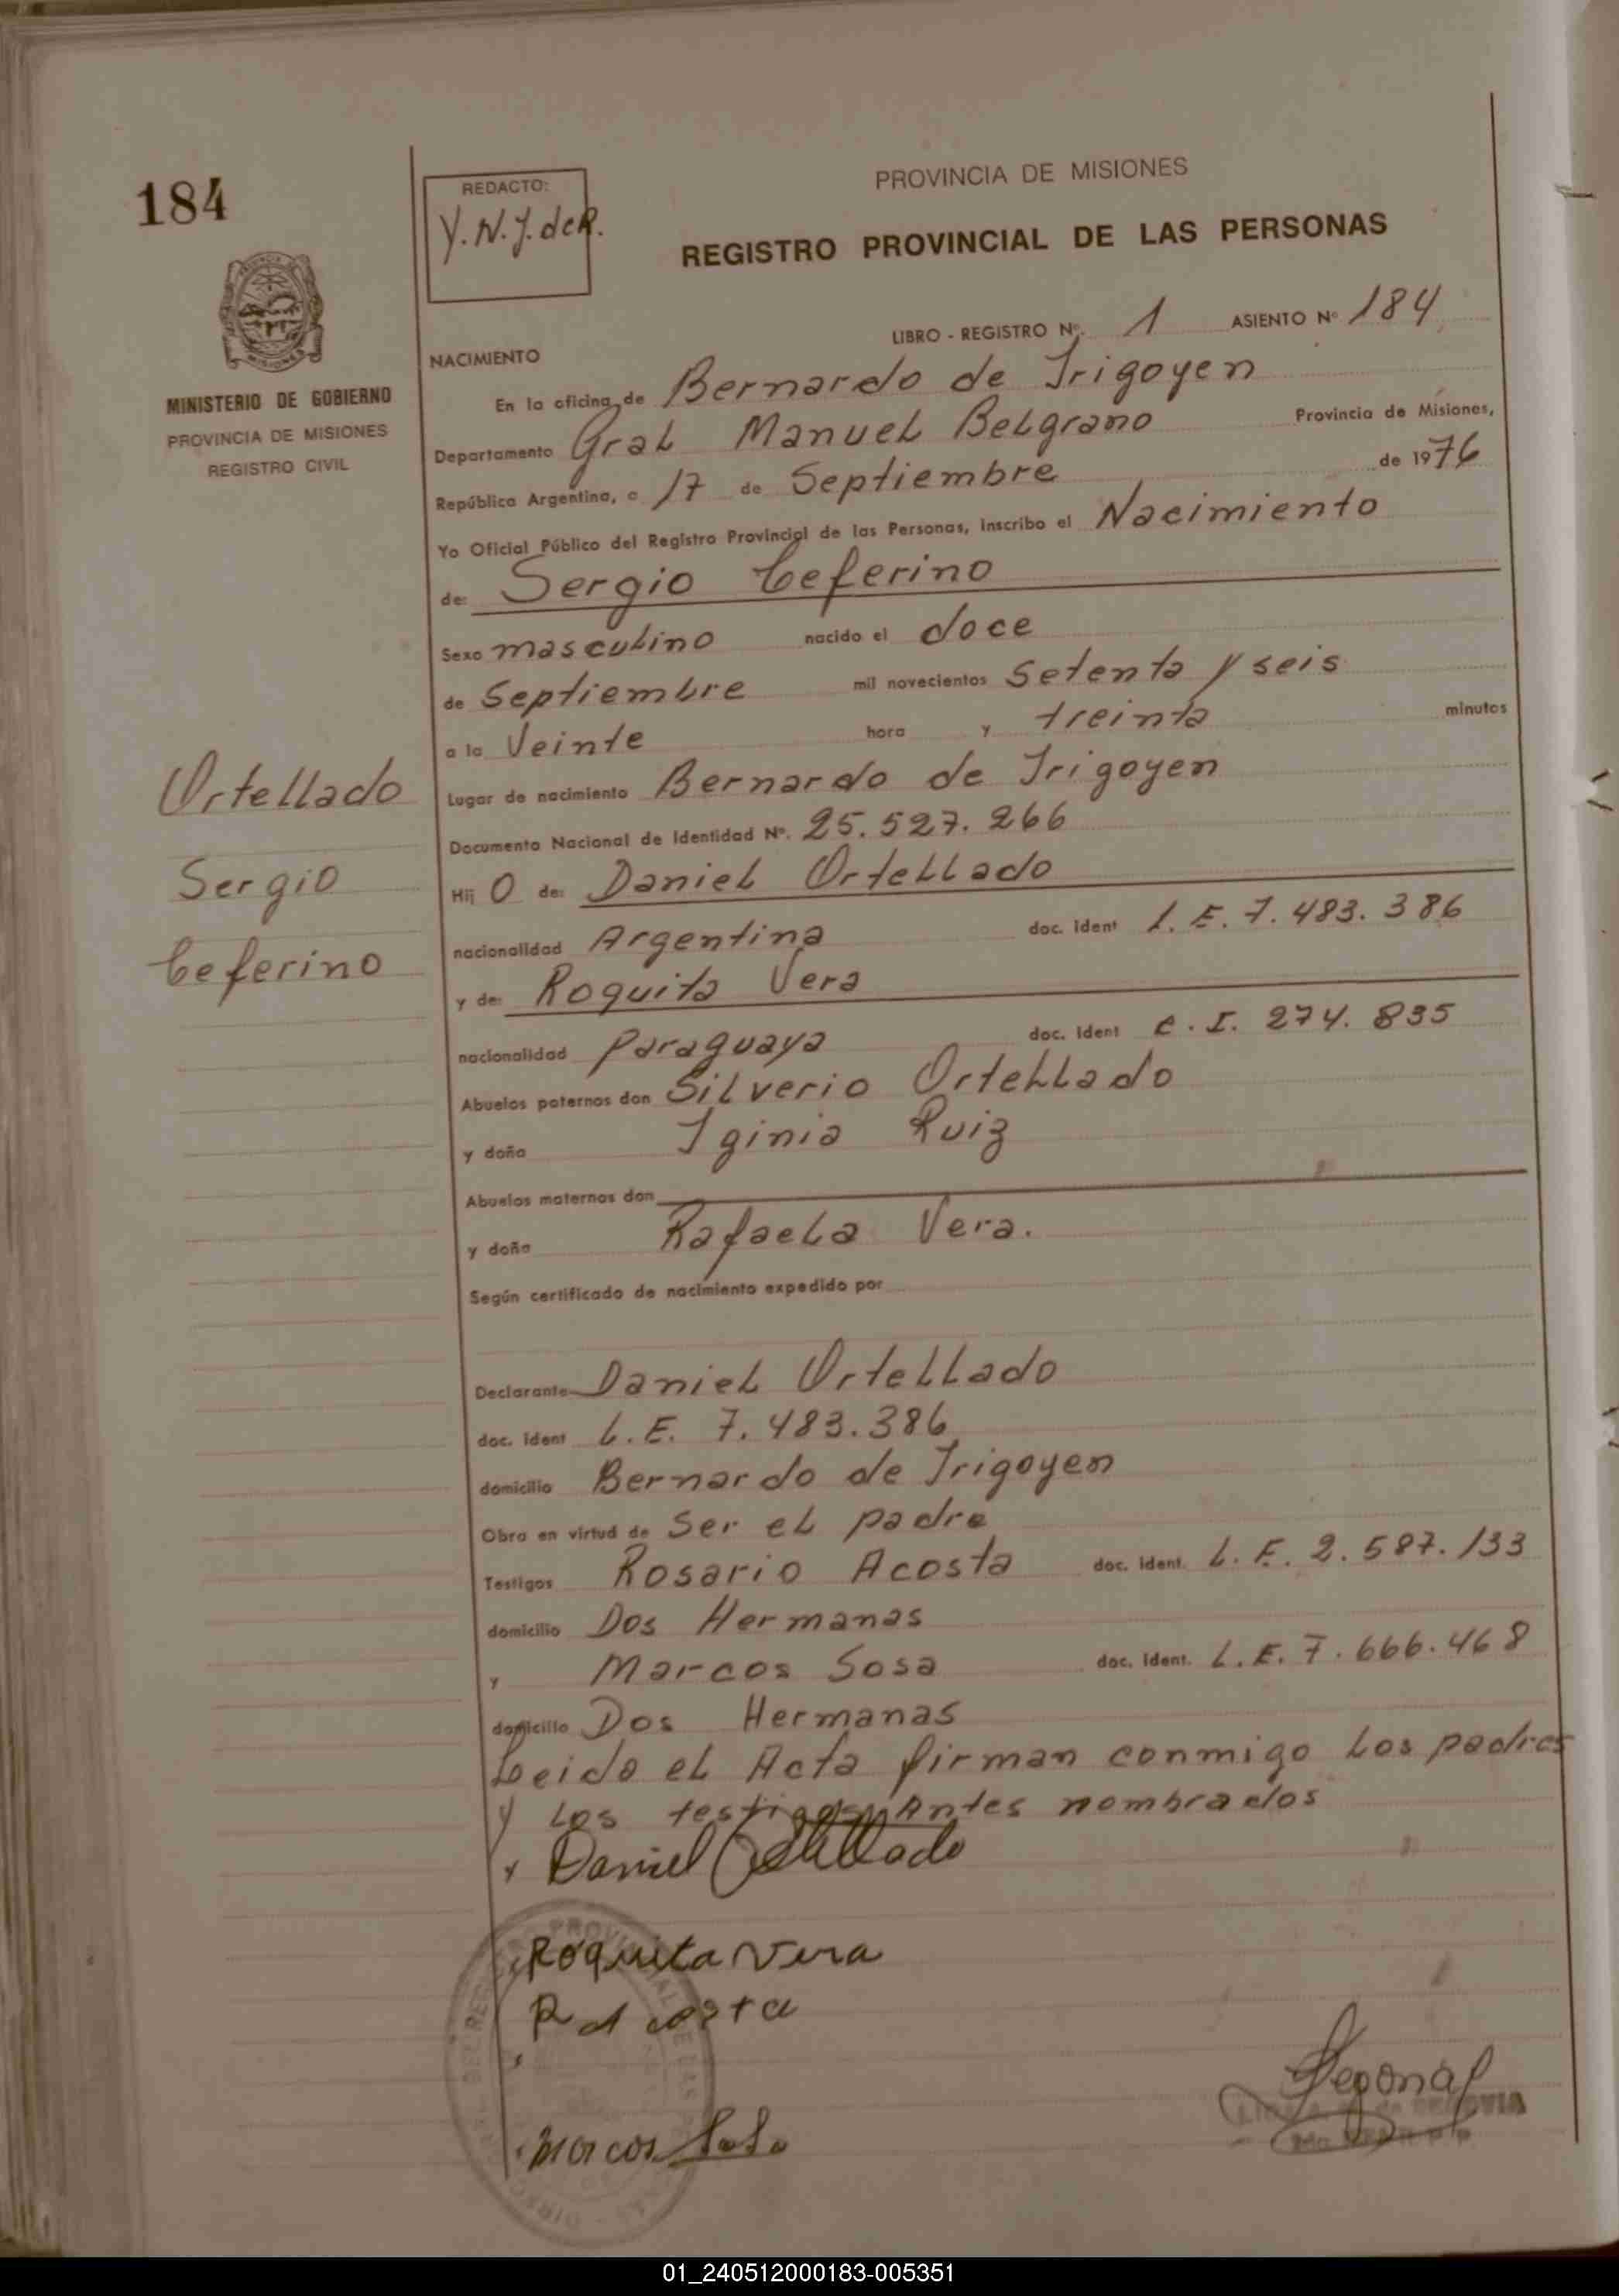 184
REDACTO:
Y. N. J. de R.
PROVINCIA DE MISIONES
REGISTRO PROVINCIAL DE LAS PERSONAS
MINISTERIO DE GOBIERNO
PROVINCIA DE MISIONES
REGISTRO CIVIL
LIBRO - REGISTRO Nº. 1 ASIENTO Nº 184
NACIMIENTO
En la oficina de Bernardo de Irigoyen
Departamento Gral Manuel Belgrano Provincia de Misiones,
República Argentina, a 17 de Septiembre de 1976
Yo Oficial Público del Registro Provincial de las Personas, Inscribo el Nacimiento
de: Sergio Ceferino
Sexo masculino nacido el doce
de Septiembre mil novecientos Setenta y seis
a la Veinte hora y treinta minutos
Lugar de nacimiento Bernardo de Irigoyen
Documento Nacional de Identidad Nº. 25.527.266
Hij O de: Daniel Ortellado
nacionalidad Argentina doc. ident L. E. 7.483.386
y de: Roquita Vera
nacionalidad paraguaya doc. ident C. I. 274.835
Abuelos paternos don Silverio Ortellado
y doña Iginia Ruiz
Abuelos maternos don
y doña Rafaela Vera.
Según certificado de nacimiento expedido por
Declarante Daniel Ortellado
doc. ident L. E. 7.483.386
domicilio Bernardo de Irigoyen
Obra en virtud de Ser el padre
Testigos Rosario Acosta doc. ident. L. E. 2.587.133
domicilio Dos Hermanas
y Marcos Sosa doc. ident. L. E. 7.666.468
domicilio Dos Hermanas
Leido el Acta firman conmigo Los padres
y Los testigos Antes nombrados
Daniel Ortellado
Roquita Vera
R Acosta
Marcos Sosa
Ortellado
Sergio
Ceferino
01_240512000183-005351